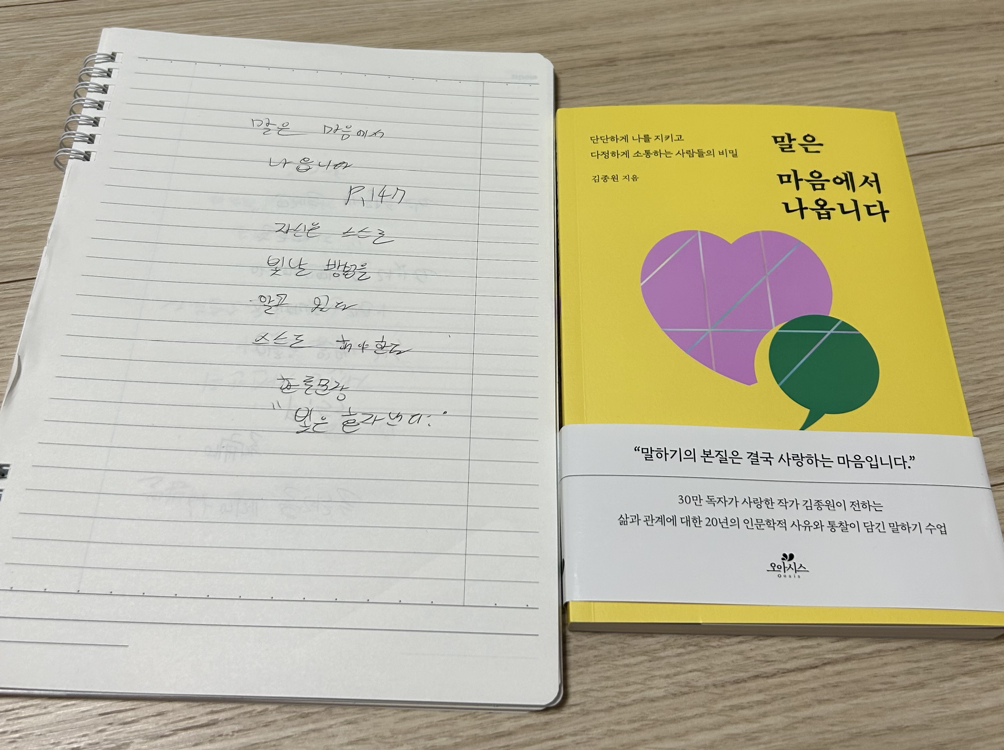 말은 마음에서
나옵니다
P.147
자신은 스스로
빛날 방법을
알고 있다
스스로 해야한다
"빛은 혼자 난다."
단단하게 나를 지키고
다정하게 소통하는 사람들의 비밀
김종원 지음
말은
마음에서
나옵니다
“말하기의 본질은 결국 사랑하는 마음입니다.”
30만 독자가 사랑한 작가 김종원이 전하는
삶과 관계에 대한 20년의 인문학적 사유와 통찰이 담긴 말하기 수업
오아시스
Oasis